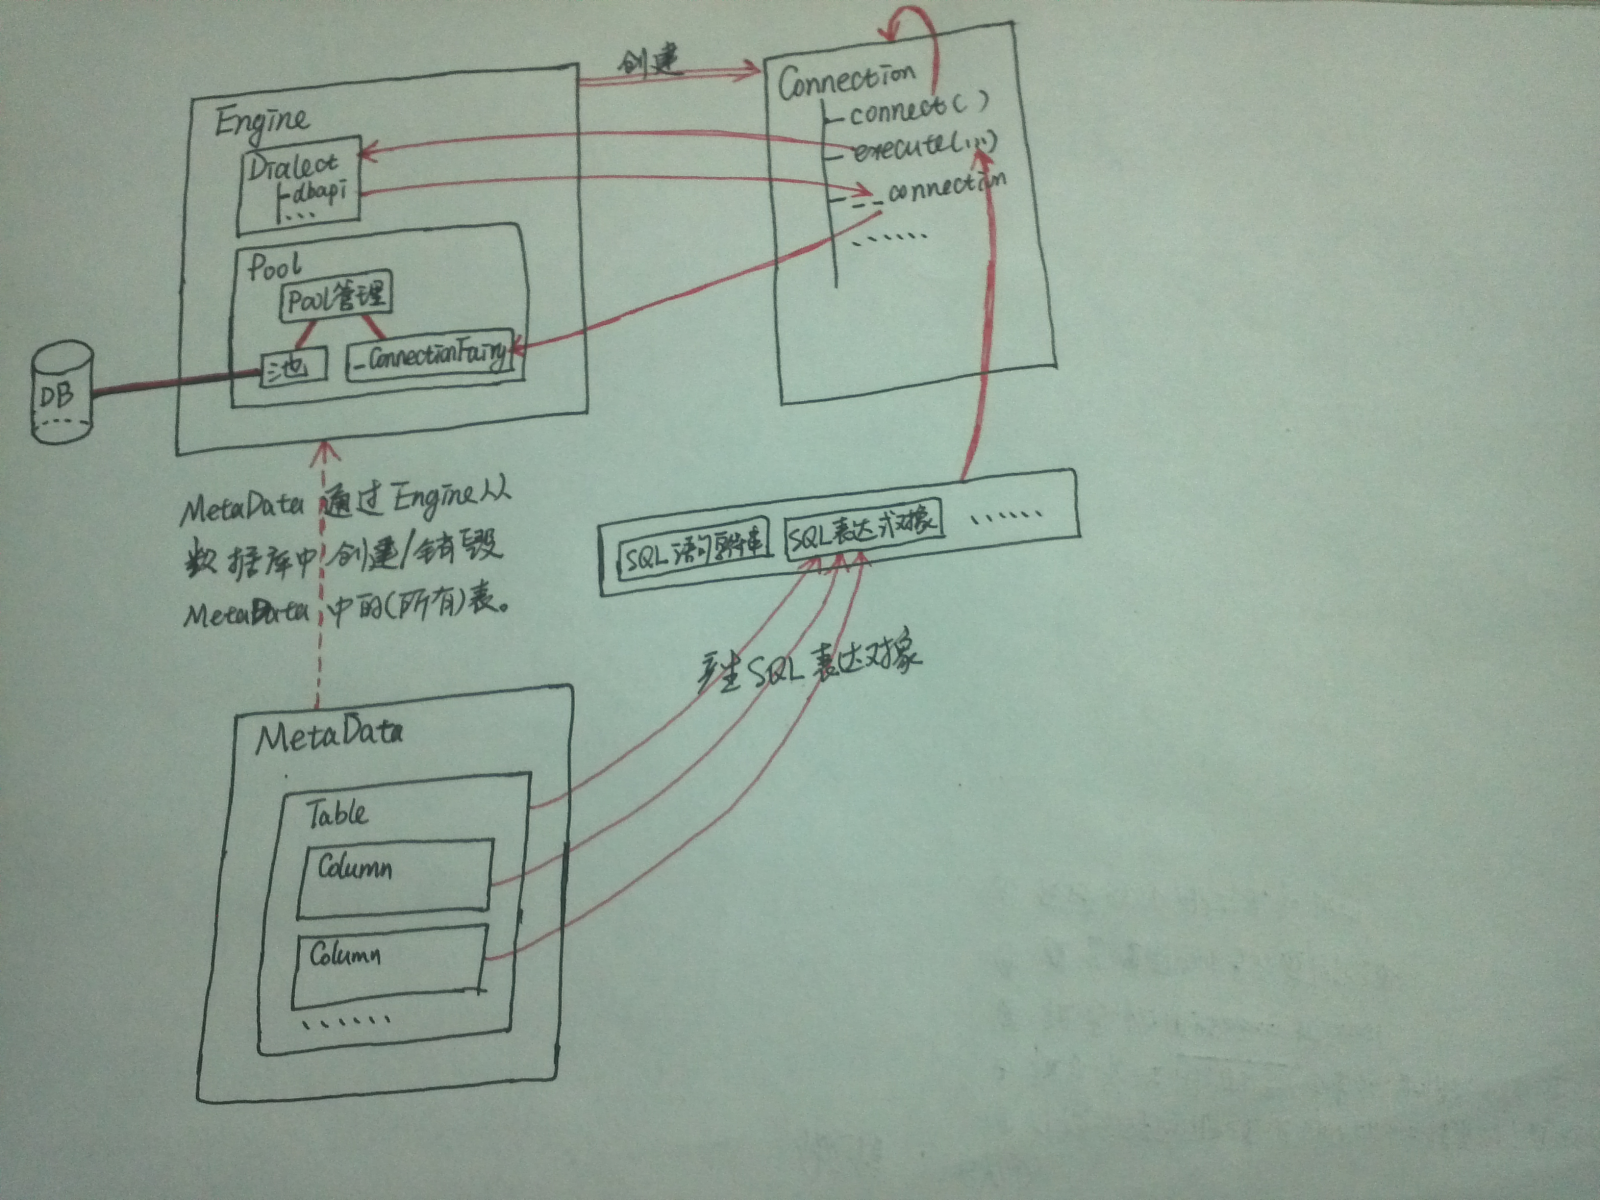 创建
Engine
Dialect
dbapi
...
Pool
Pool管理
池
_ConnectionFairy
DB
Connection
connect()
execute(...)
__connection
......
MetaData 通过Engine从
数据库中创建/销毁
MetaData 中的(所有)表。
SQL语句字符串
SQL表达式对象
......
产生SQL表达对象
MetaData
Table
Column
Column
......